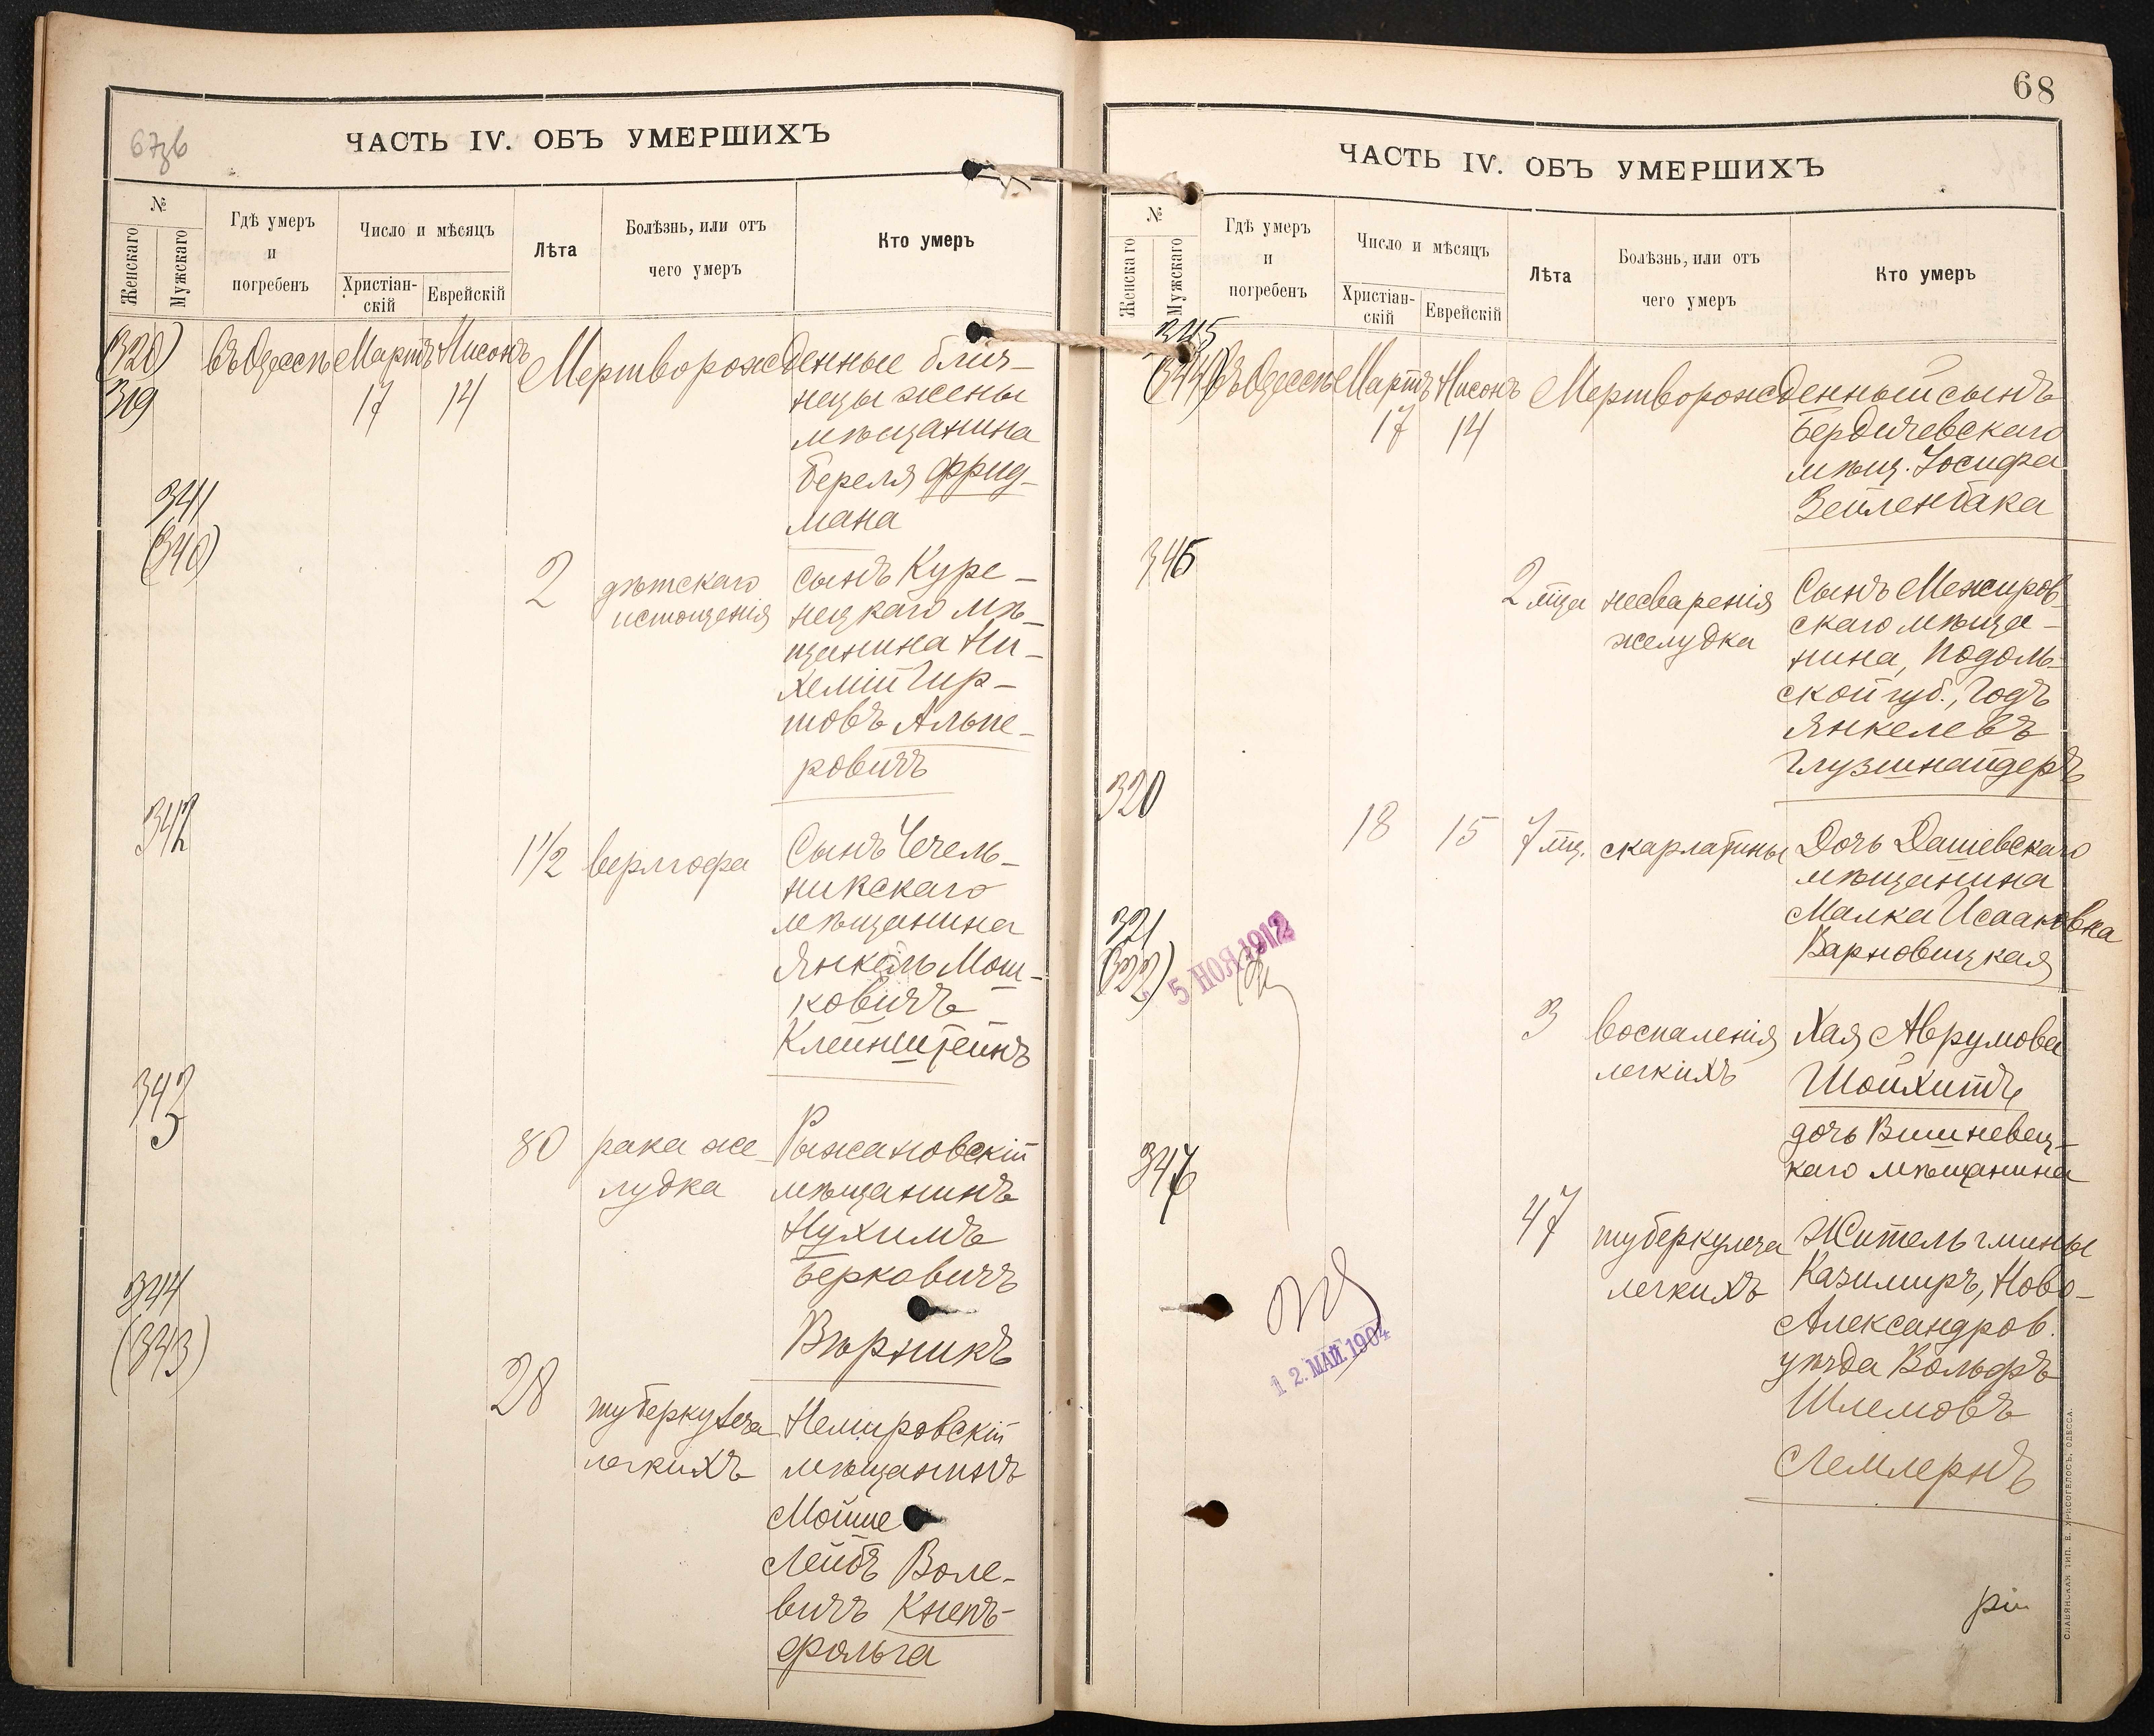 67зв
ЧАСТЬ IV. ОБЪ УМЕРШИХЪ
№
Женскаго
Мужскаго
Гдѣ умеръ
и
погребенъ
Число и мѣсяцъ
Христіан-
скій
Еврейскій
Лѣта
Болѣзнь, или отъ
чего умеръ
Кто умеръ
(320) въ Одессѣ Мартъ Нисонъ Мертворожденные близ-
319 17 14 нецы жены
мѣщанина
Береля Фрид-
мана
341
(340)
2 дѣтскаго сынъ Куре-
истощенія нецкаго мѣ-
щанина Ни-
хемій Гир-
шовъ Альпе-
ровичъ
342
1 1/2 верлгофа Сынъ Чечель-
никскаго
мѣщанина
Янкель Мош-
ковичъ
Клейнштейнъ
343
80 рака же- Рыжановскій
лудка мѣщанинъ
Нухимъ
Берковичъ
Вѣрникъ
344
(343)
28 туберкулеза Немировскій
легкихъ мѣщанинъ
Мойше
Лейбъ Воле-
вичъ Кнепъ-
фольга
68
ЧАСТЬ IV. ОБЪ УМЕРШИХЪ
№
Женскаго
Мужскаго
Гдѣ умеръ
и
погребенъ
Число и мѣсяцъ
Христіан-
скій
Еврейскій
Лѣта
Болѣзнь, или отъ
чего умеръ
Кто умеръ
345
(344) въ Одессѣ Мартъ Нисонъ Мертворожденный сынъ
17 14 Бердичевскаго
мѣщ. Іосифа
Зейленбака
346
2 мца несваренія Сынъ Межиров-
желудка скаго мѣща-
нина, Подоль-
ской губ., Годъ
Янкелевъ
Глузшнайдеръ
320
18 15 7 мц. скарлатины Дочь Дашевскаго
мѣщанина
Малка Исааковна
Варновицкая
321
(322)
5 НОЯ 1912
3 воспаленія Хая Аврумова
легкихъ Шойхитъ
дочь Вишневец-
каго мѣщанина
347
47 туберкулеза Житель гмины
легкихъ Казимиръ, Ново-
Александров.
уѣзда Вольфъ
Шлемовъ
Лемлернъ
12. МАЙ 1904
СЛАВЯНСКАЯ ТИП. Е. ХРИСОГЕЛОСЪ, ОДЕССА.